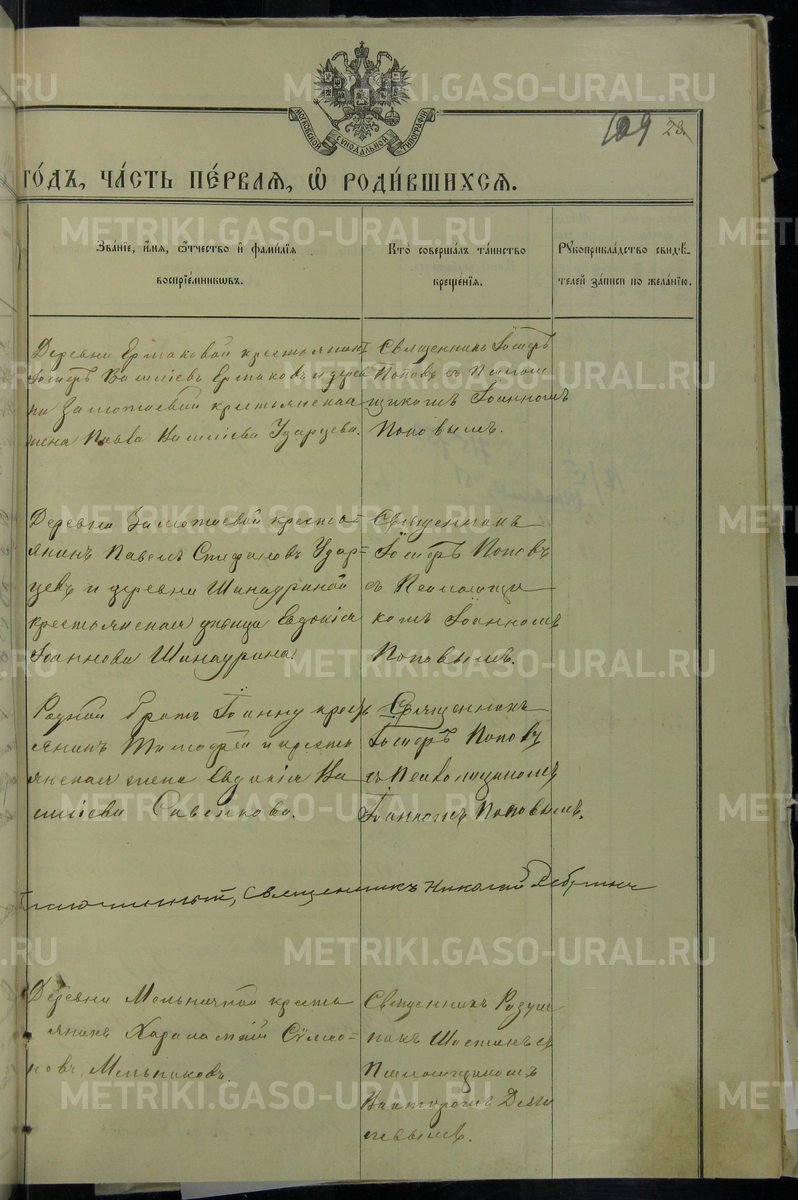 МОСКОВСКОЙ СѴНОДАЛЬНОЙ ТИПОГРАФІИ
109 28.
ГО́ДЪ, ЧА́СТЬ ПЕ́РВАЯ, Ѡ҆ РОДИ́ВШИХСЯ.
Зва́нїе, и҆́мя, ѻ҆́тчество и҆ фами́лїя
воспрїе́мникωвъ.
Кто̀ соверша́лъ та́инство
креще́нїя.
Рꙋкоприкла́дство свидѣ́-
телей за́писи по жела́нїю.
Деревни Ермаковой крестьянинъ
Іосифъ Василіевъ Ермаковъ и дерев
ни Замотаевой крестьянская
жена Павла Василіева Ударцева.
Священникъ Іосифъ
Поповъ съ Псаломо
щикомъ Іоанномъ
Поповымъ.
Деревни Замотаевой кресть-
янинъ Павелъ Стефановъ Удар-
цевъ и деревни Шинауриной
крестьянская дѣвица Евдокія
Іоаннова Шинаурина.
Священникъ
Іосифъ Поповъ
съ Псаломщи
комъ Іоанномъ
Поповымъ.
Родной братъ Іоанну крест
янинъ Тимофей и кресть
янская жена Евдокія Ва
силіева Савенкова.
Священникъ
Іосифъ Поповъ
съ Псаломщикомъ
Іоанномъ Поповымъ.
священникъ Николай
Деревни Мельничной кресть
янинъ Харалампій Сѵмео-
новъ Мельниковъ.
Священникъ Разум
никъ съ
Псаломщикомъ
Викторомъ
METRIKI.GASO-URAL.RU